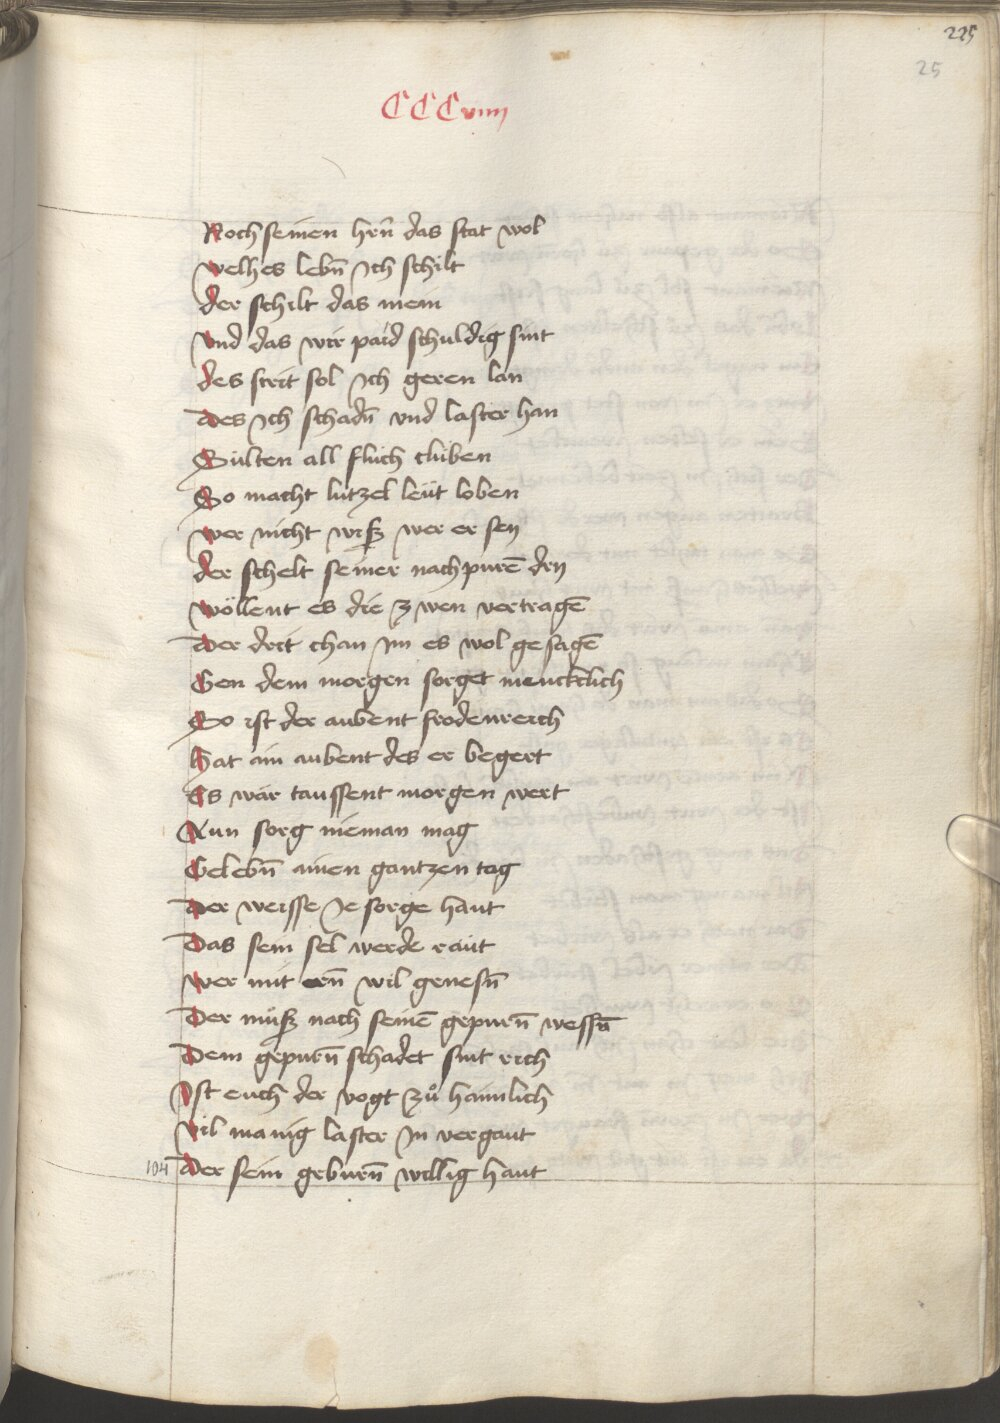 225
25
CCCviiij
Noch seinen hrn̄ das stat wol
welhes lebn̄ Ich schilt
der schilt das mein
vnd das wir paid schuldig sint
des streit sol Ich geren lan
des Ich schadn̄ vnd laster han
Sülten all fluch chliben
So macht lützel leüt loben
wer nicht wisß wer er sey
der schelt seiner nachpurē dry
wöllent es die zwen vertragē
der drit chan Im es wol gesagē
Gen dem morgen sorget mencklich
So ist der aubent frodenreich
Hat ain aubent des er begert
Es wär taussent morgen wert
Nun sorg nieman mag
Gelebn̄ ainen gantzen tag
der weisse Ie sorge haut
Das sein sel werde raut
wer mit ern̄ wil genesn̄
Der müsß nach seinē gepurn̄ wessn̄
Dem gepurn̄ schadet sint rich
Ist euch der vogt zů haimlich
vil manig laster In vergaut
104 der sein geburn̄ willig haut